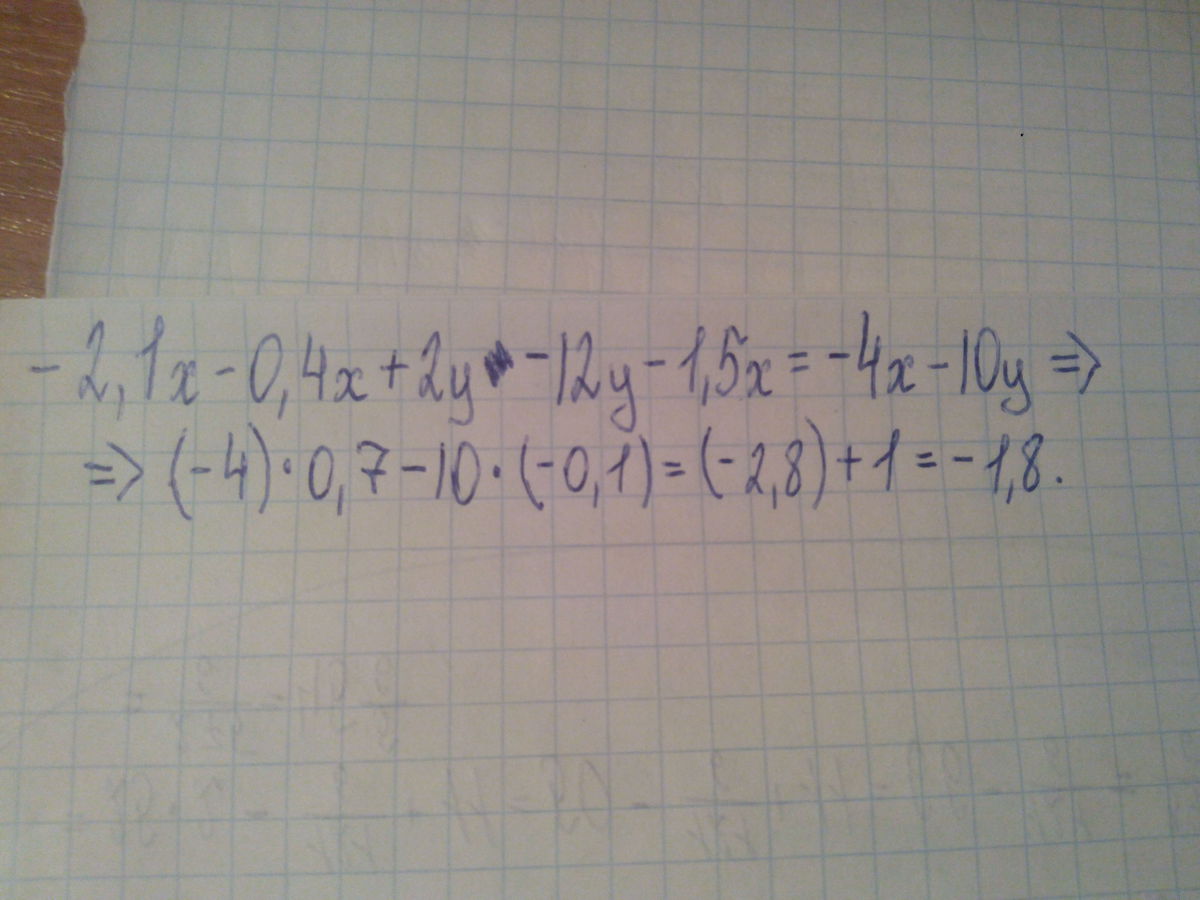 -2,1x-0,4x+2y -12y-1,5x=-4x-10y =>
=> (-4)·0,7-10·(-0,1)=(-2,8)+1=-1,8.